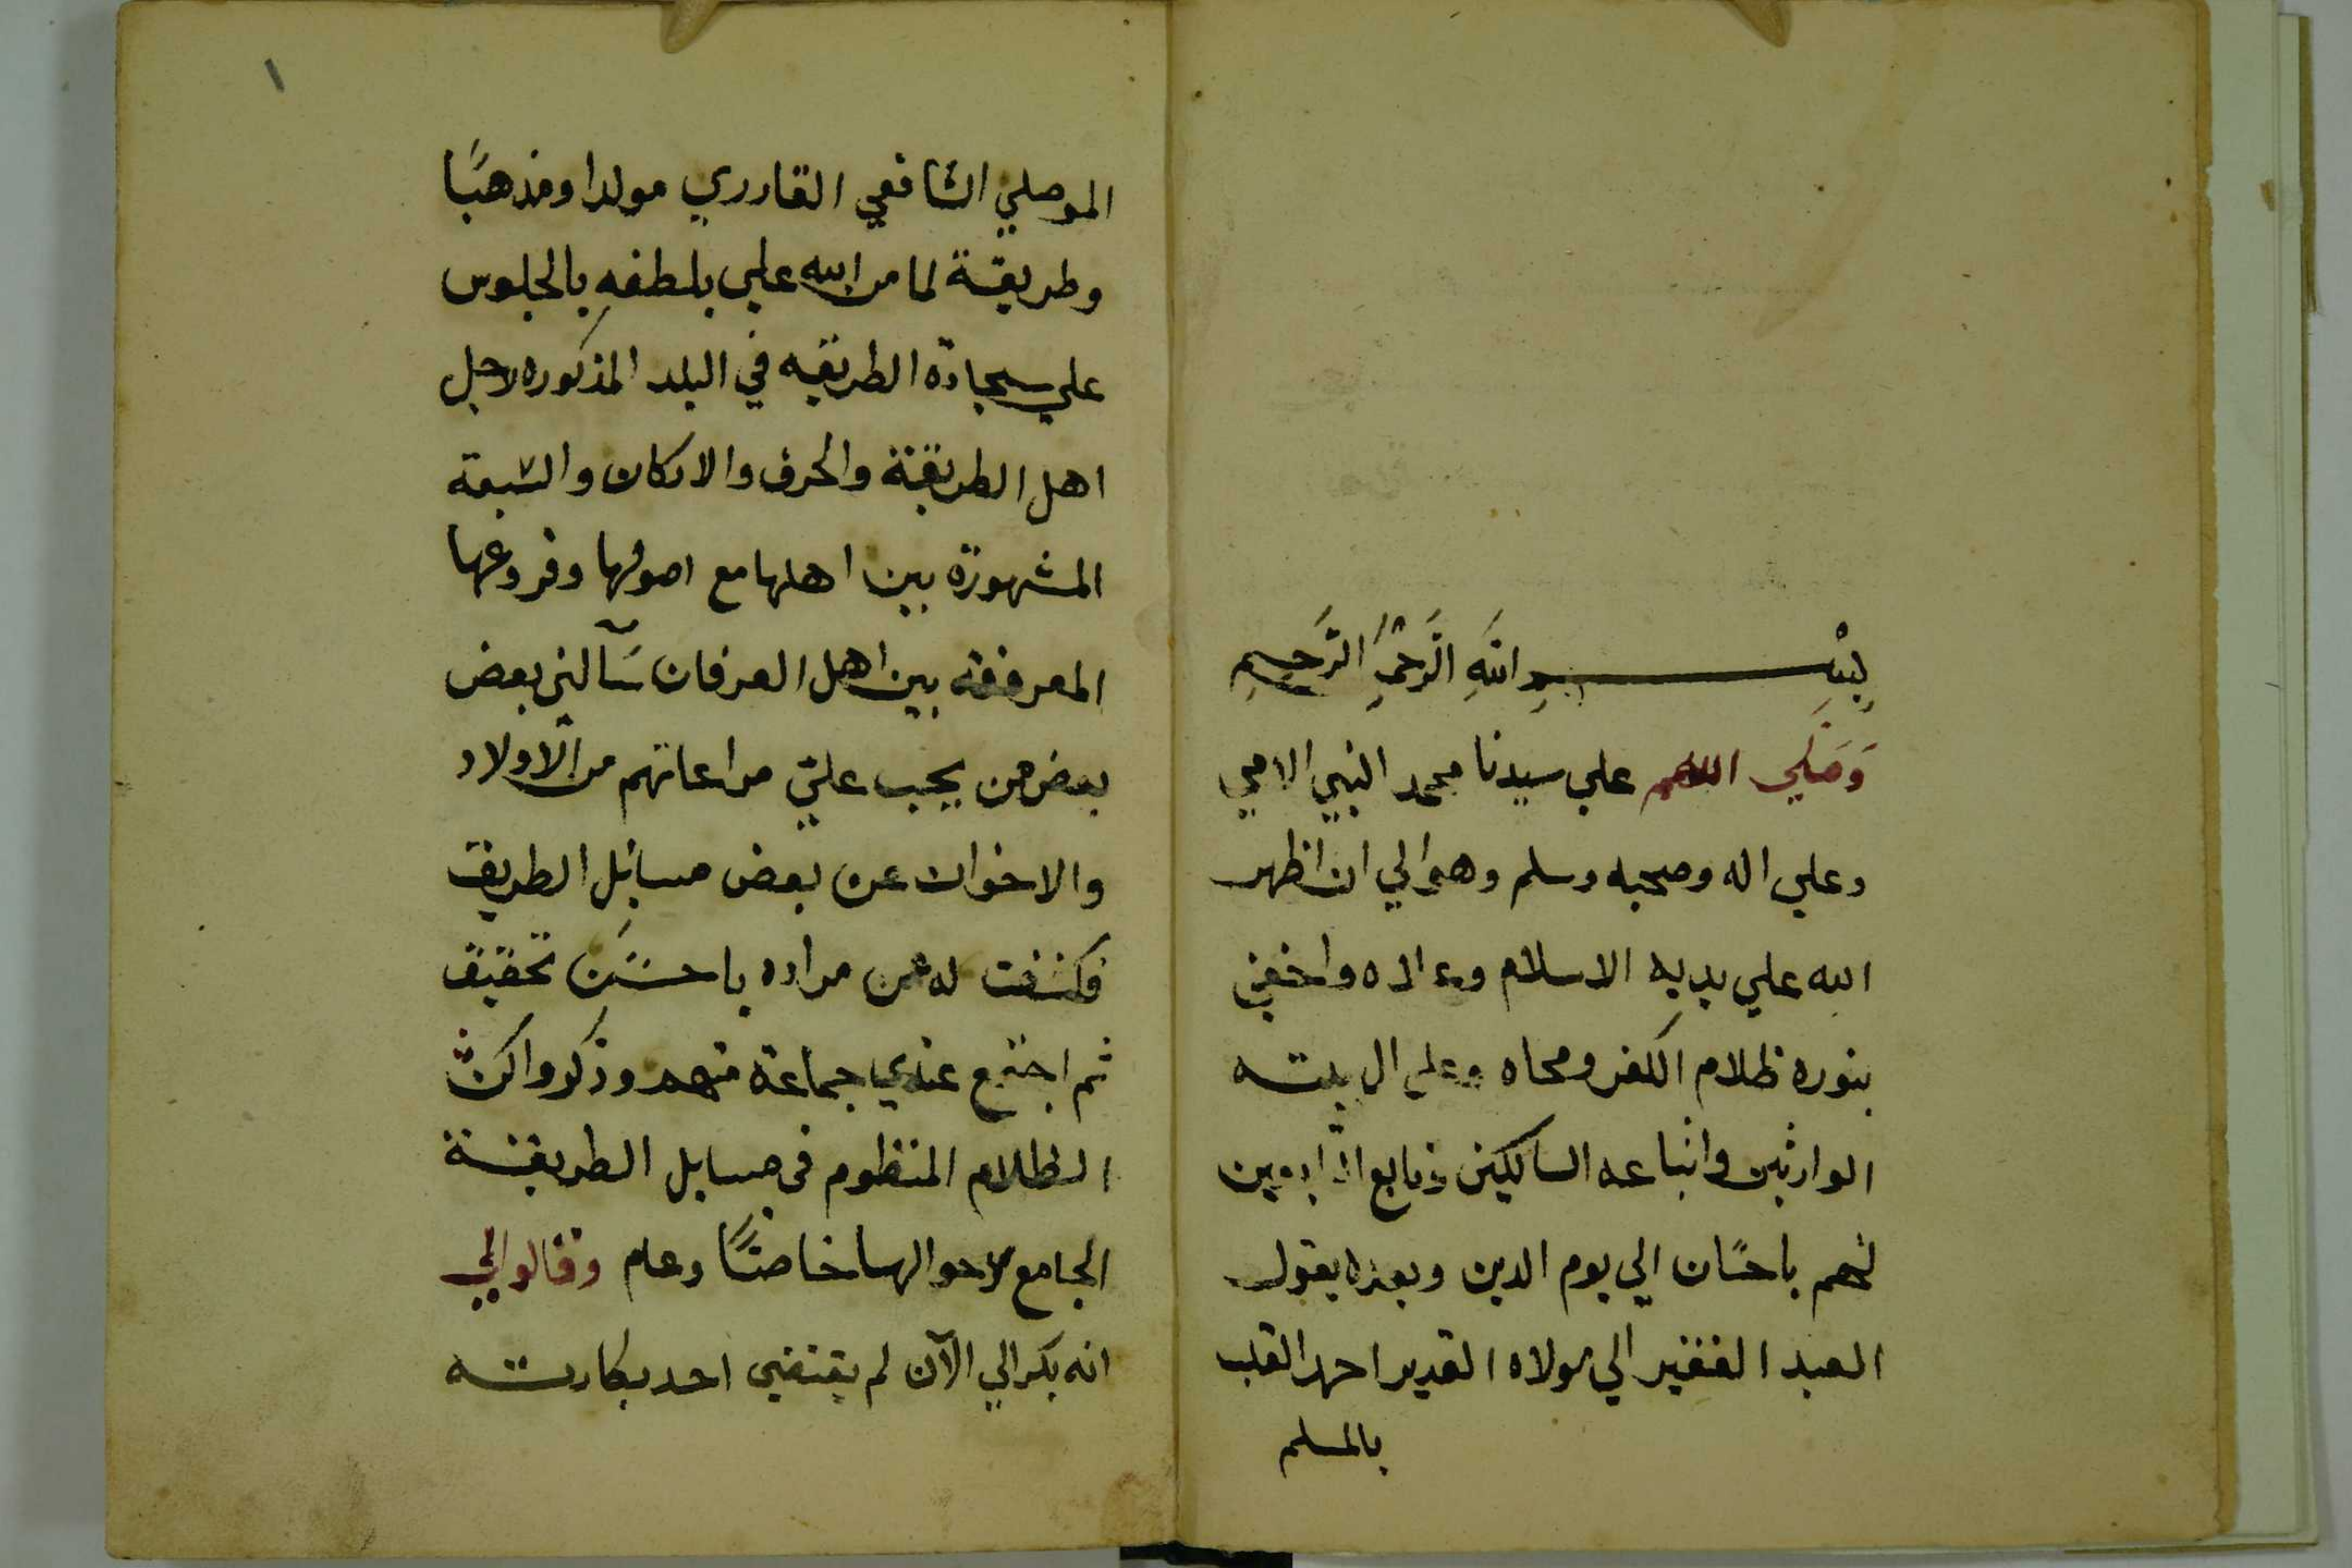 بِسْمِ اللهِ الرَّحْمٰنِ الرَّحِيمِ
وَصَلَّي اللهم علي سيدنا محمد النبي الامي
وعلي اله وصحبه وسلم وهو الي ان اظهر
الله علي يديه الاسلام واخفي
بنوره ظلام الكفر ومحاه وعلي ال بيته
الوارثين واتباعه السالكين وتابع
لهم باحسًان الي يوم الدين وبعده يقول
العبد الفقير الي مولاه القدير احمد القلب
بالمسلم
١
الموصلي الشافعي القادري مولدا ومذهبًا
وطريقة لما من الله علي بلطفه بالجلوس
علي سجادة الطريقه في البلد المذكوره لاجل
اهل الطريقة والحرف والاركان والشبعة
المشهورة بين اهلها مع اصولها وفروعها
المعرفة بين اهل العرفان سَآلني بعض
بعض من يجب عليّ مراعاتهم من الاولاد
والاخوان عن بعض مسايل الطريق
فكشفت له عن مراده باحسَن تحقيق
ثم اجتمع عندي جماعة منهم وذكروا كثر
الظلام المنظوم في مسايل الطريقة
الجامع لاحوالها خاصًّا وعام وقالوا لي
انه بكر الي الآن لم يقتفي احد بكارته